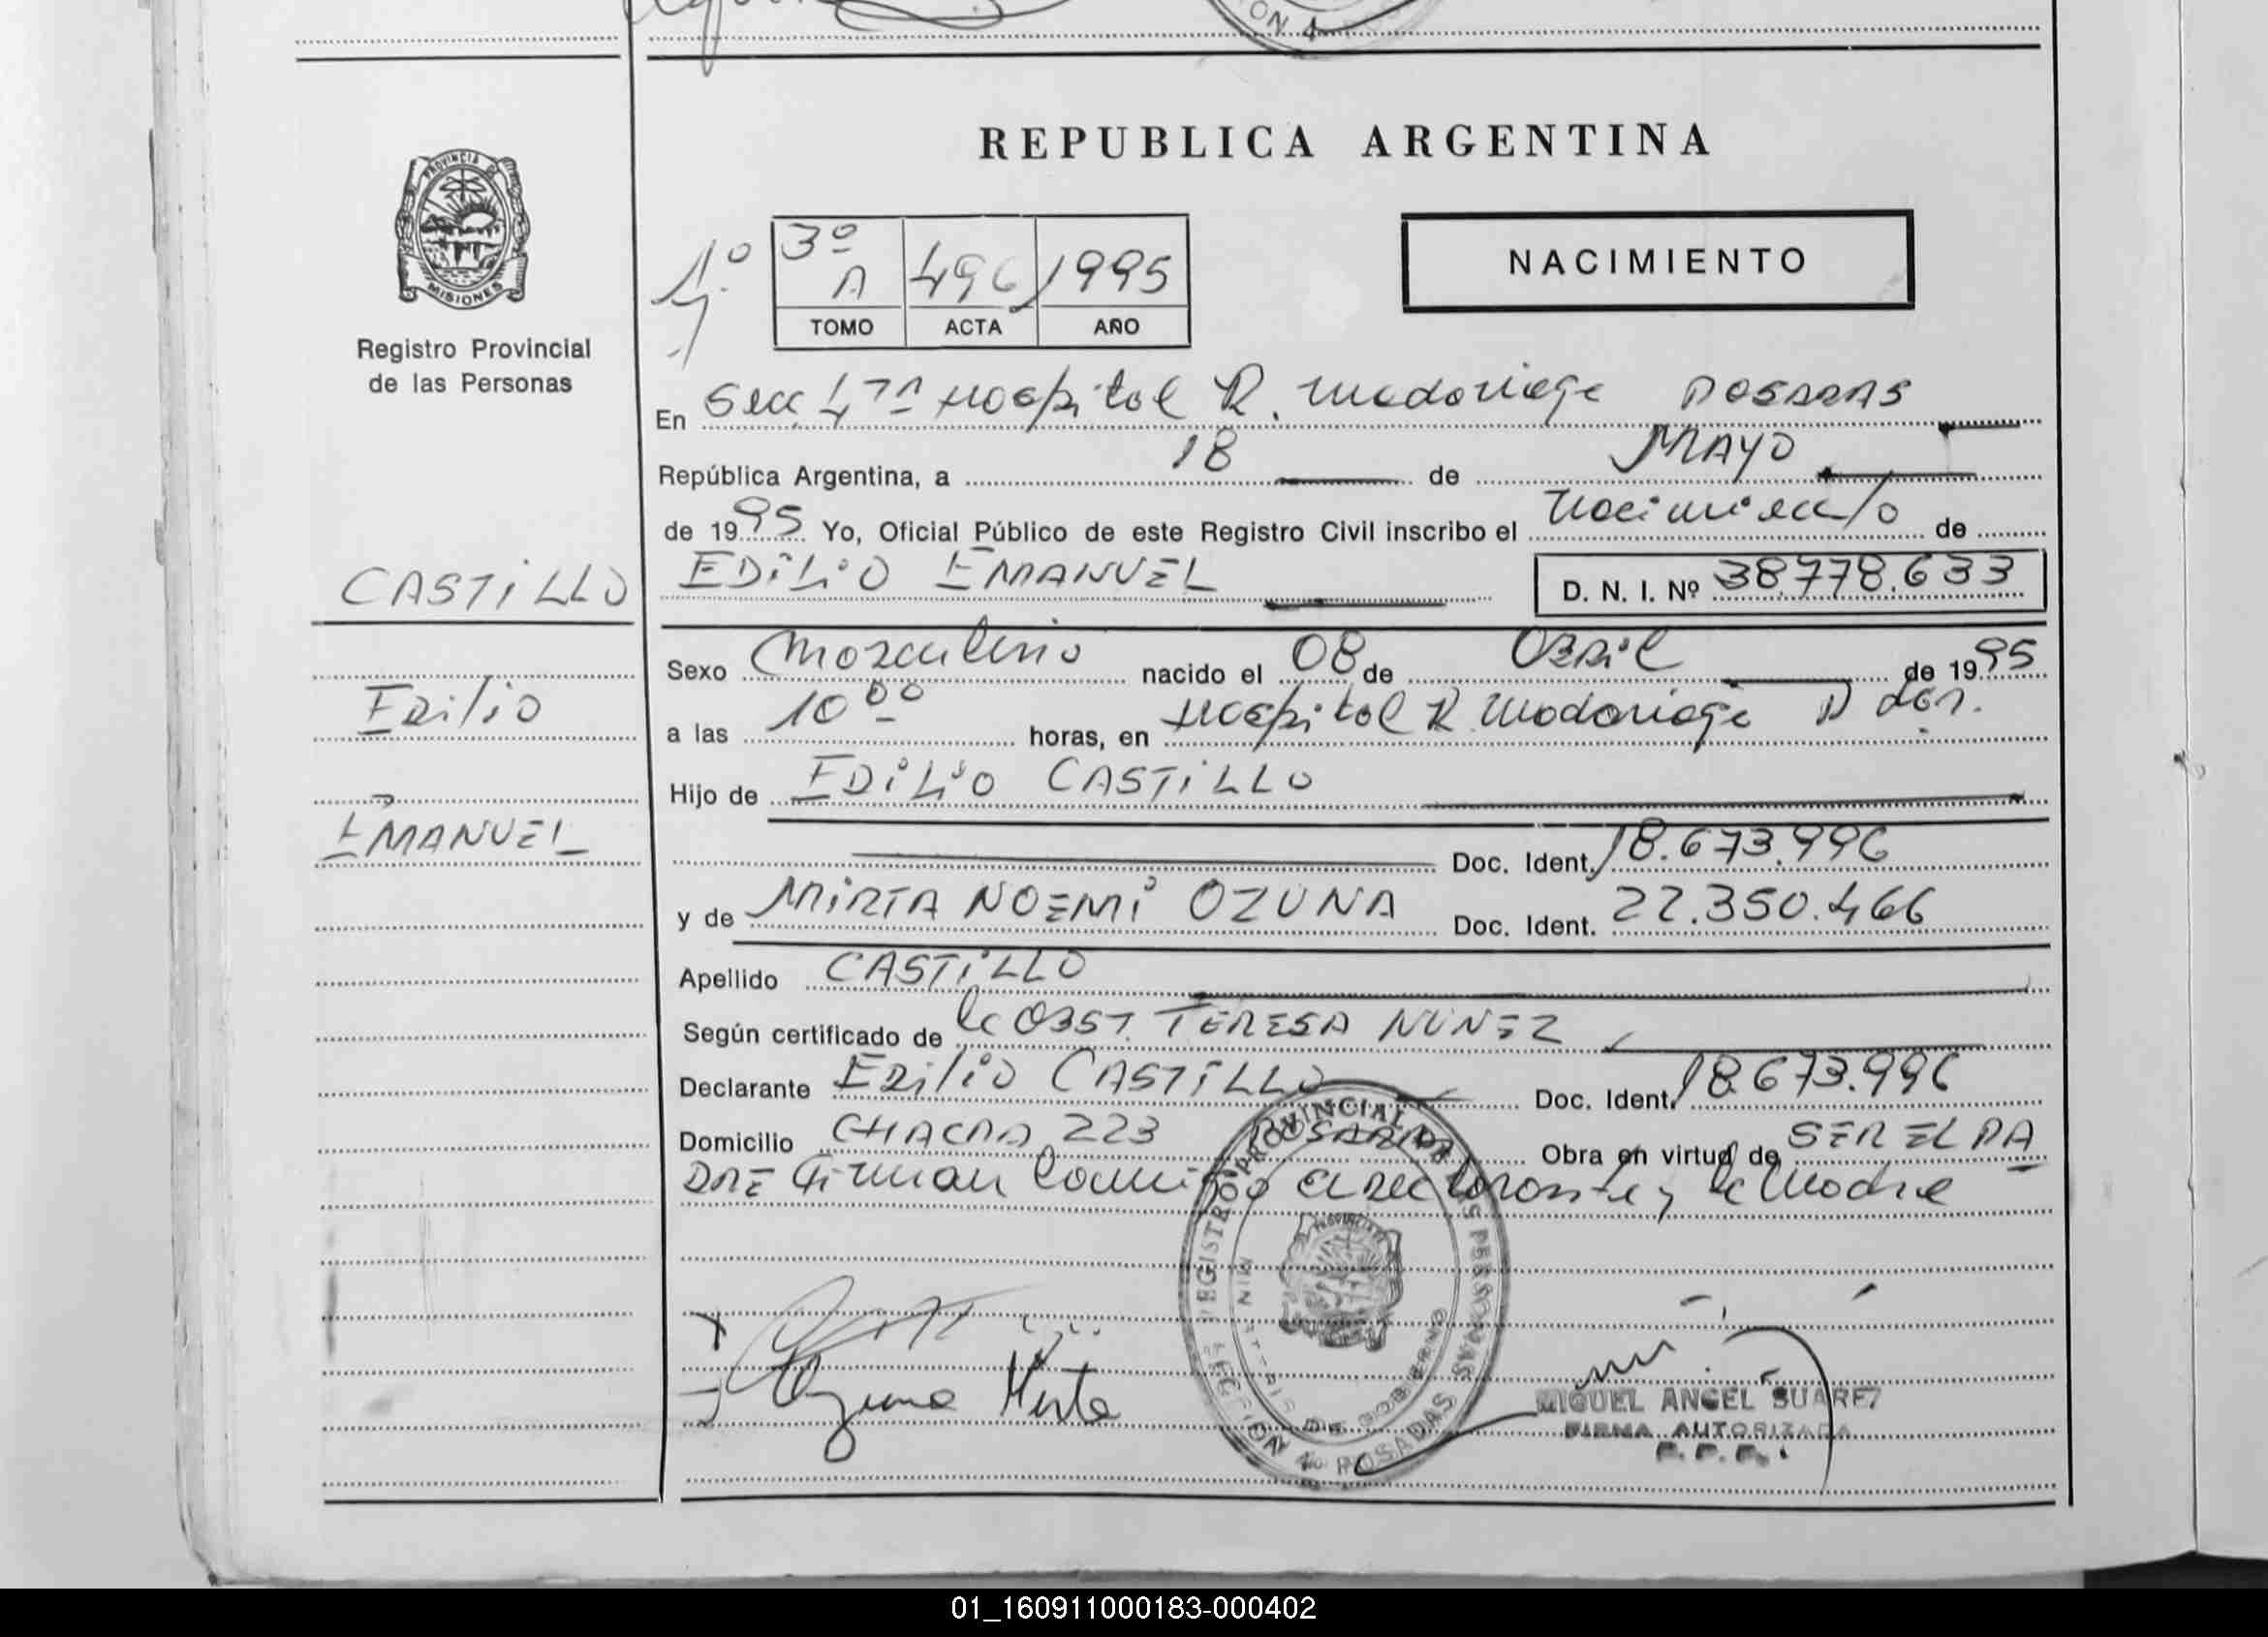 REPUBLICA ARGENTINA
PROVINCIA DE
MISIONES
Registro Provincial
de las Personas
1º
3º
A 496 1995
TOMO ACTA AÑO
NACIMIENTO
En Secc 4ta Hospital R. Madariaga POSADAS
República Argentina, a 18 de MAYO
de 1995 Yo, Oficial Público de este Registro Civil inscribo el nacimiento de
CASTILLO
EDILIO EMANUEL D. N. I. Nº 38.778.633
Sexo Masculino nacido el 08 de ABRIL de 1995
Edilio
a las 10 00 horas, en Hospital R. Madariaga
Hijo de EDILIO CASTILLO
EMANUEL
Doc. Ident. 18.673.996
y de MIRTA NOEMI OZUNA Doc. Ident. 22.350.466
Apellido CASTILLO
Según certificado de la OBST. TERESA NUNEZ
Declarante Edilio CASTILLO Doc. Ident. 18.673.996
Domicilio CHACRA 223 POSADAS Obra en virtud de SER EL PA
DRE Firman conmigo el declarante y la madre
REGISTRO PROVINCIAL DE LAS PERSONAS
MINISTERIO DE GOBIERNO
SECCION 4 POSADAS
Ozuna Mirta
MIGUEL ANGEL SUAREZ
FIRMA AUTORIZADA
R. P. P.
01_160911000183-000402